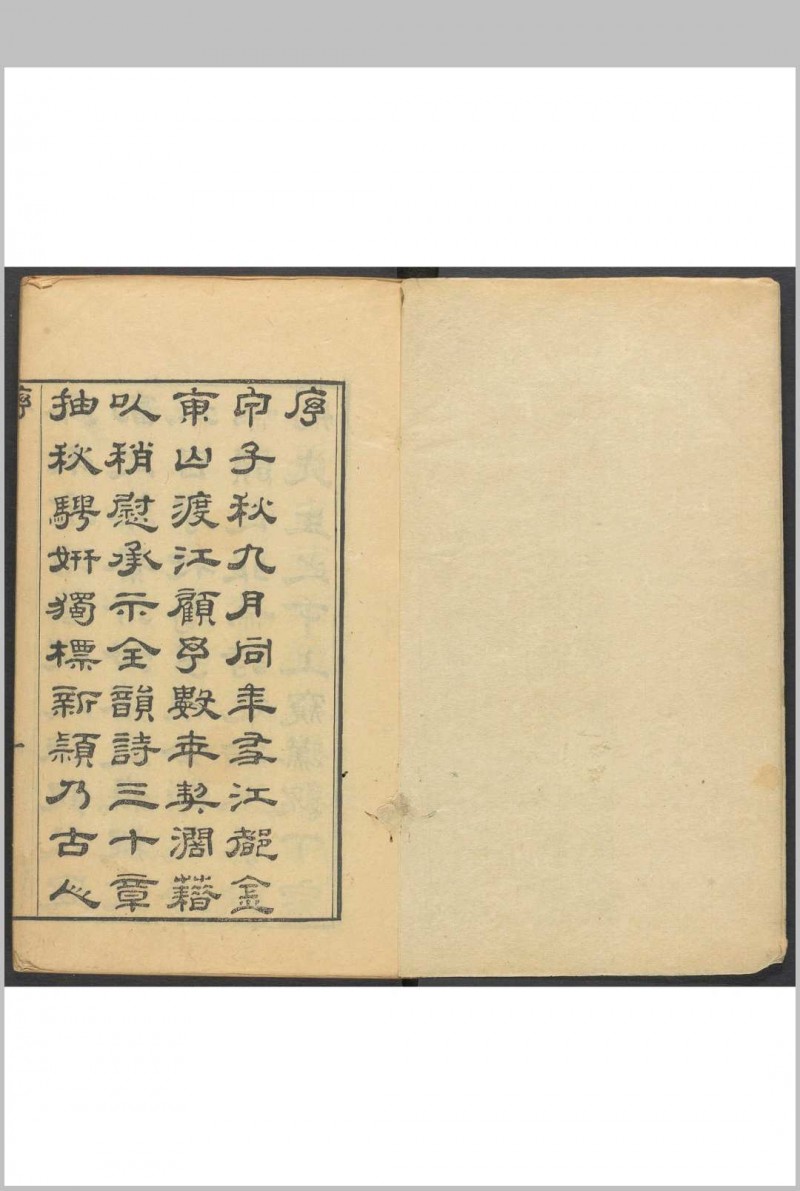 序
丙子秋九月同年友江都金
東山渡江顧予數年契濶藉
以稍慰承示全韻詩三十章
抽秘騁妍獨標新穎乃古心
序
一